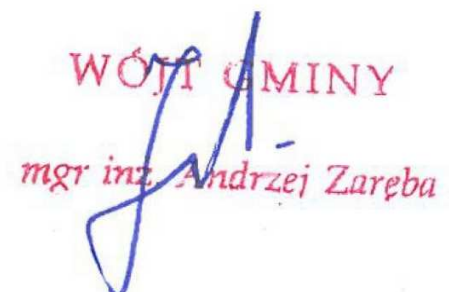 WÓJT GMINY
mgr inż. Andrzej Zaręba